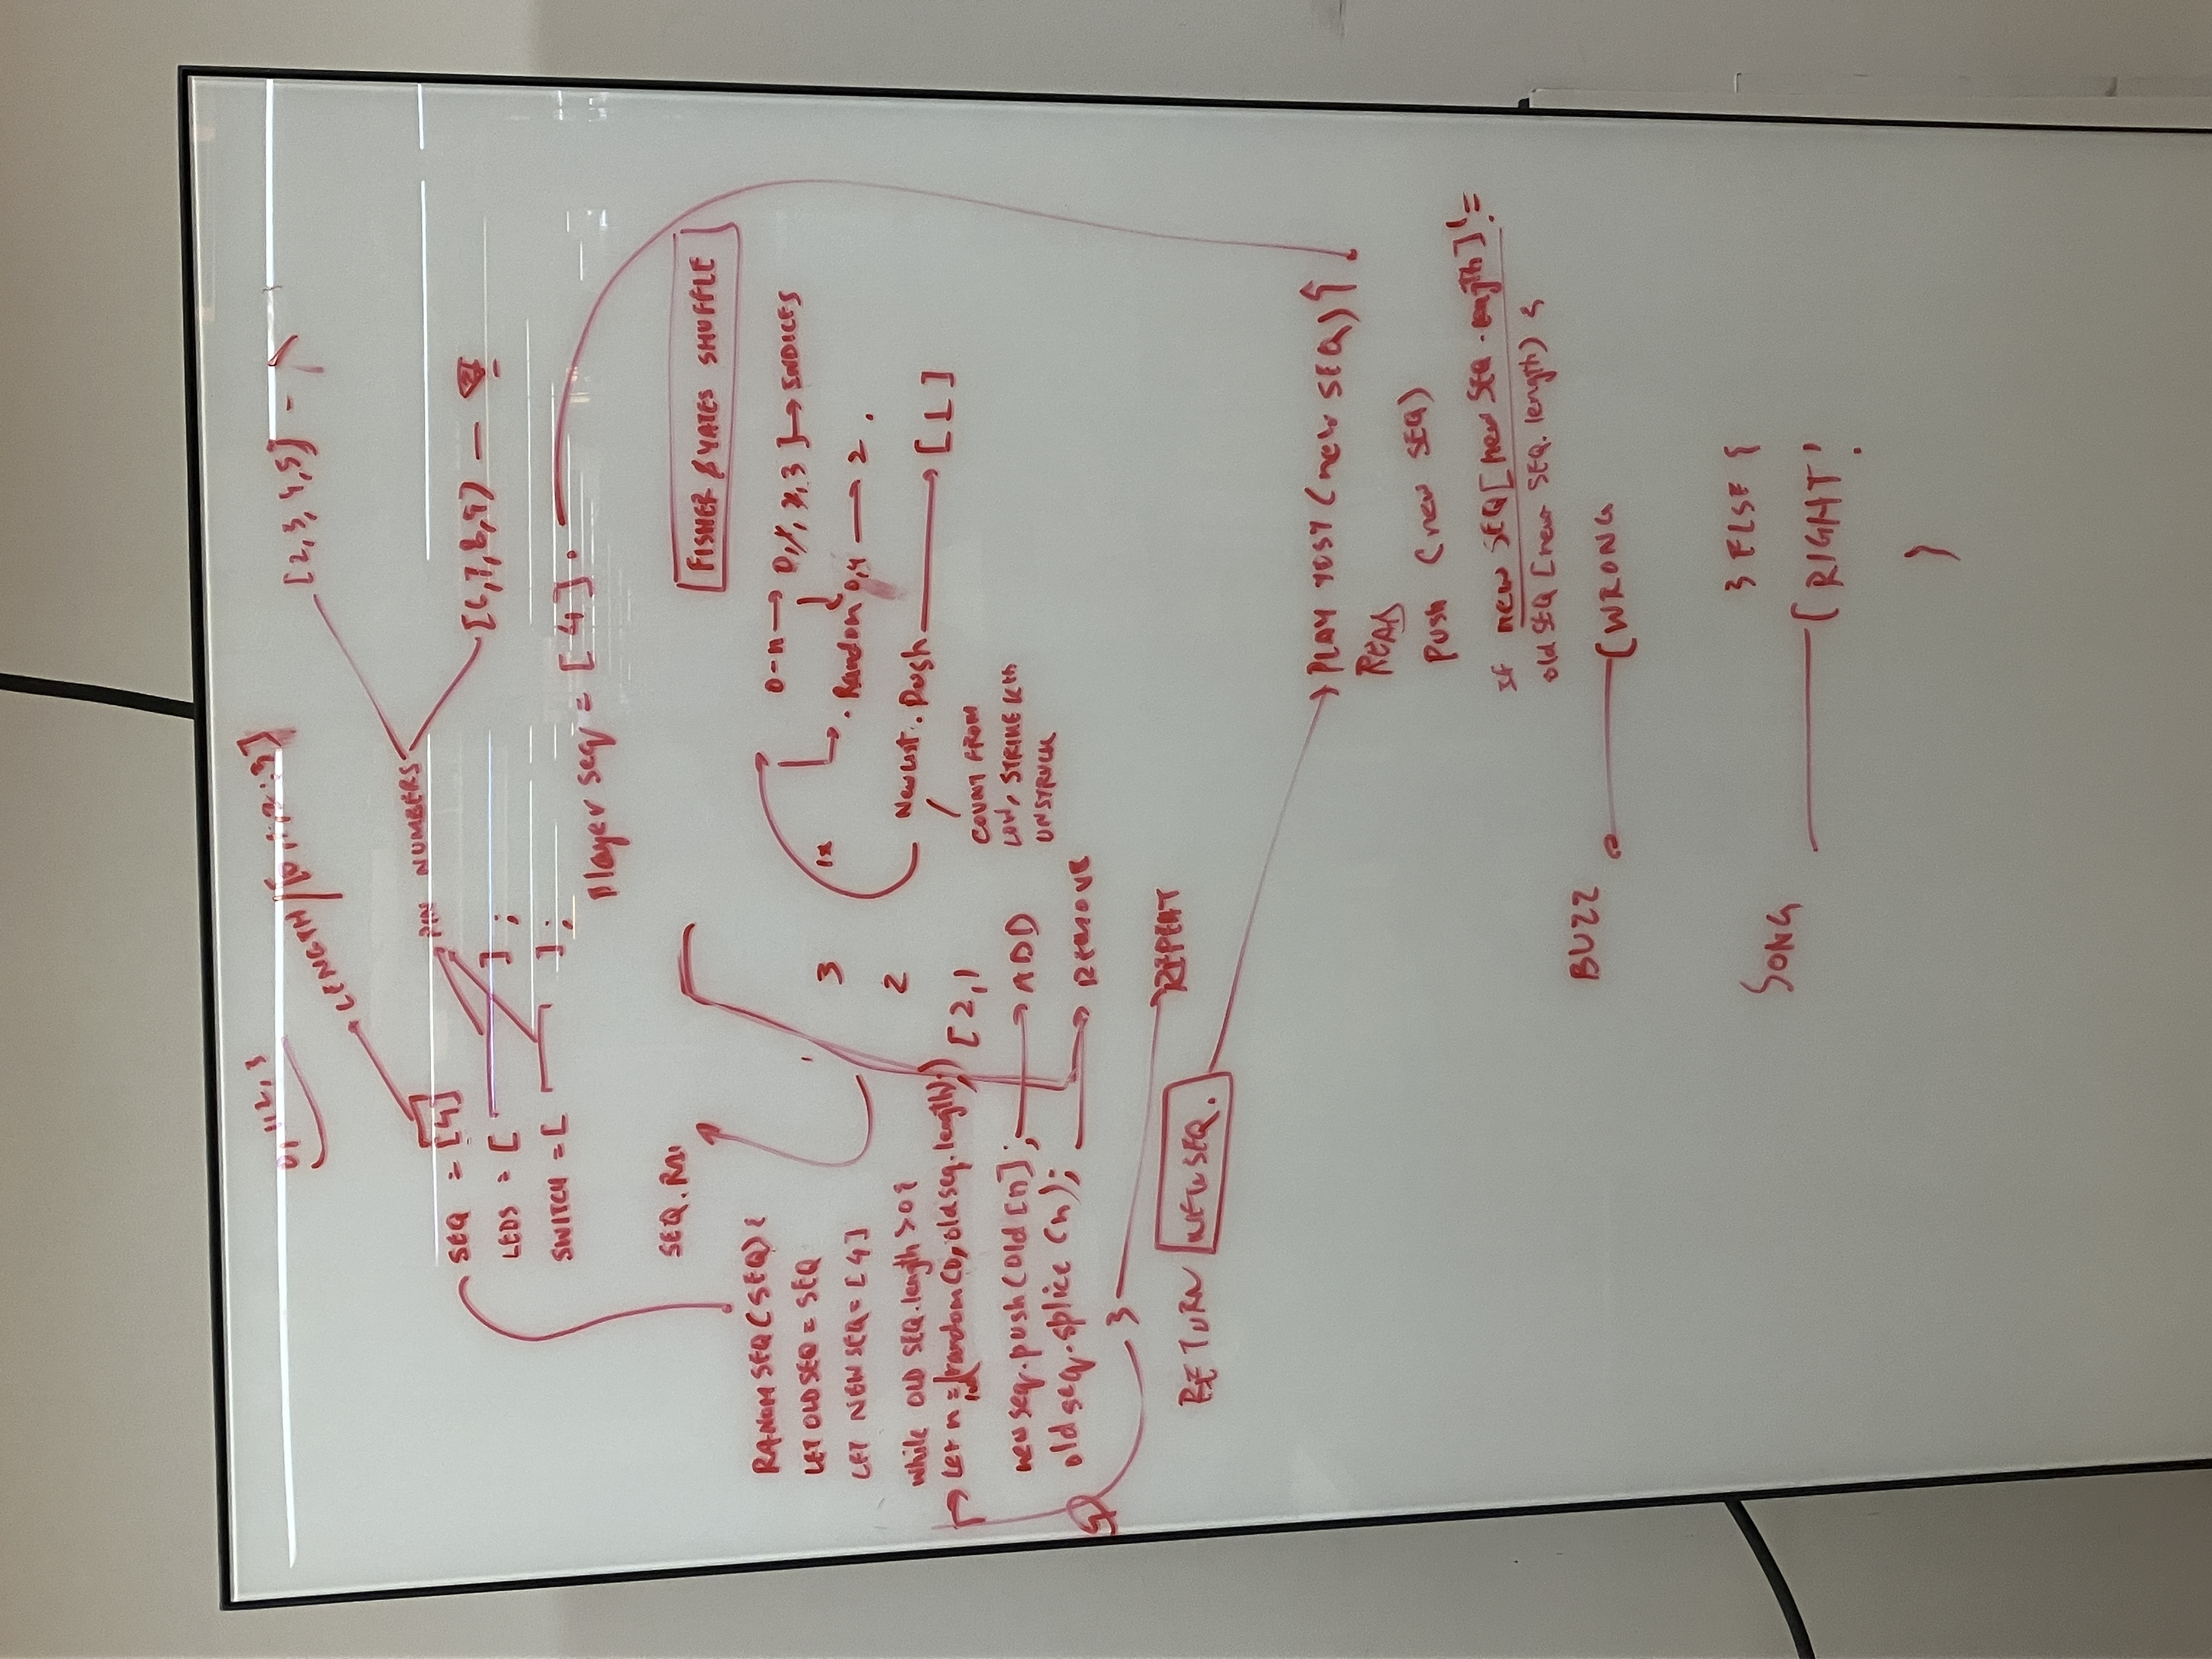 0,1,2,3
LENGTH [0,1,2,3]
[2,3,4,5]
SEQ = [4]
PIN NUMBERS
LEDS = [ ];
[6,7,8,9]
SWITCH = [ ];
Player seq = [4].
SEQ.
FISHER YATES SHUFFLE
RANOM SEQ (SEQ) {
LET OLD SEQ = SEQ
LET NEW SEQ = [4]
while OLD SEQ.length > 0 {
LET n = (random(0, old seq.length));
[2,1
new seq.push(old[n];
ADD
old seq.splice(n);
REMOVE
}
REPEAT
RETURN NEW SEQ.
3
2
1x
0-n → 0,1,2,3
INDICES
.Random 0,4 — 2.
New List.Push → [1]
COUNT FROM
LOW, STRIKE Kth
UNSTRUCK
PLAY TEST (new SEQ) {
READ
PUSH (new SEQ)
If new SEQ [new SEQ.length] !=
old SEQ [new SEQ.length) {
BUZZ
(WRONG
} ELSE {
SONG
(RIGHT!
}